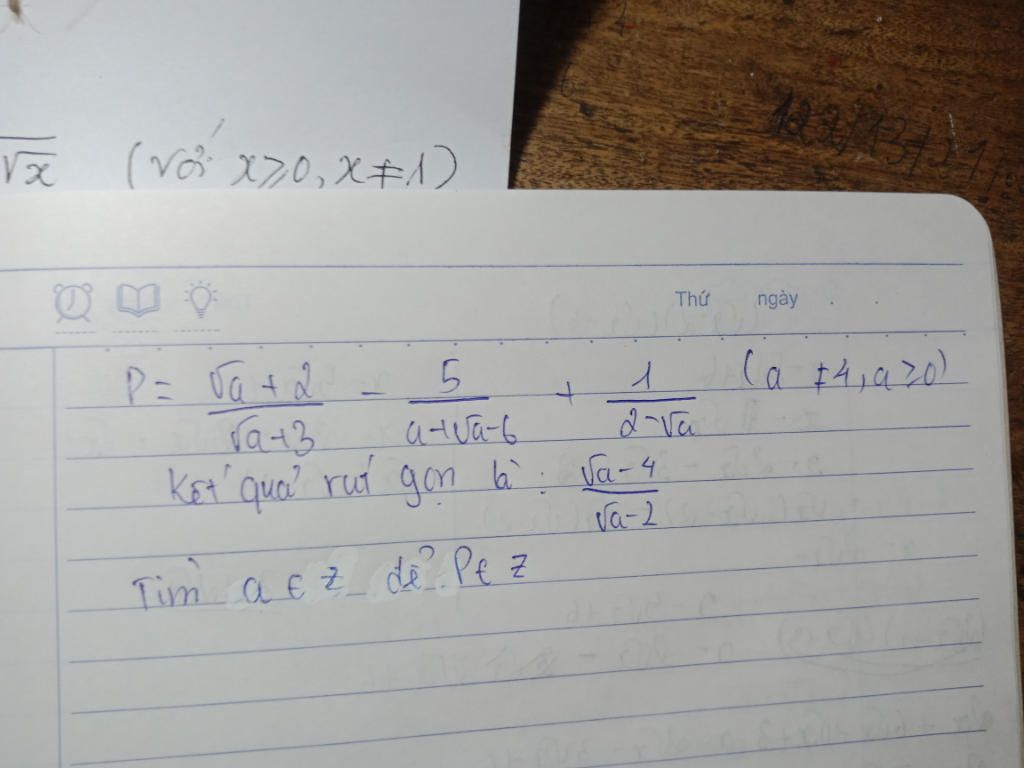 √x (với x≥0, x≠1)
Thứ ngày . .
P = (√a + 2)/(√a+3) - 5/(a+√a-6) + 1/(2-√a) (a ≠4, a≥0)
Kết quả rút gọn là : (√a-4)/(√a-2)
Tìm a ∈ Z để P∈ Z